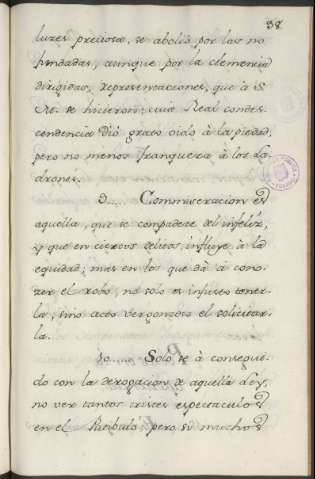 38.
luzes preciosa, se abolió por las no
fundadas, aunque por la clemencia
dirigidas, representaciones, que à S.
M. se hicieron; cuia Real condes-
cendencia dió grato oido à la piedad,
pero no menos franqueza à los La-
drones.
9..... Commiseracion es
aquella, que se compadece del infeliz,
y que en ciertos delitos influye à la
equidad; mas en los que dà à cono-
zer el robo, no solo es injusto tener-
la, sino acto vergonzoso el solicitar-
la.
10..... Solo se à consegui-
do con la derogacion de aquella Ley,
no ver tantos tristes espectaculos
en el Patibulo pero si muchos